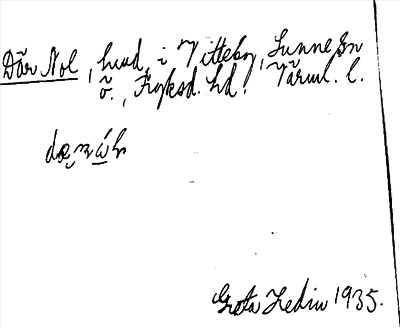 Där Nol, hmd i Vitteby, Sunne sn
ö., Fryksd. hd. Värml. l.
Greta Hedin 1935.